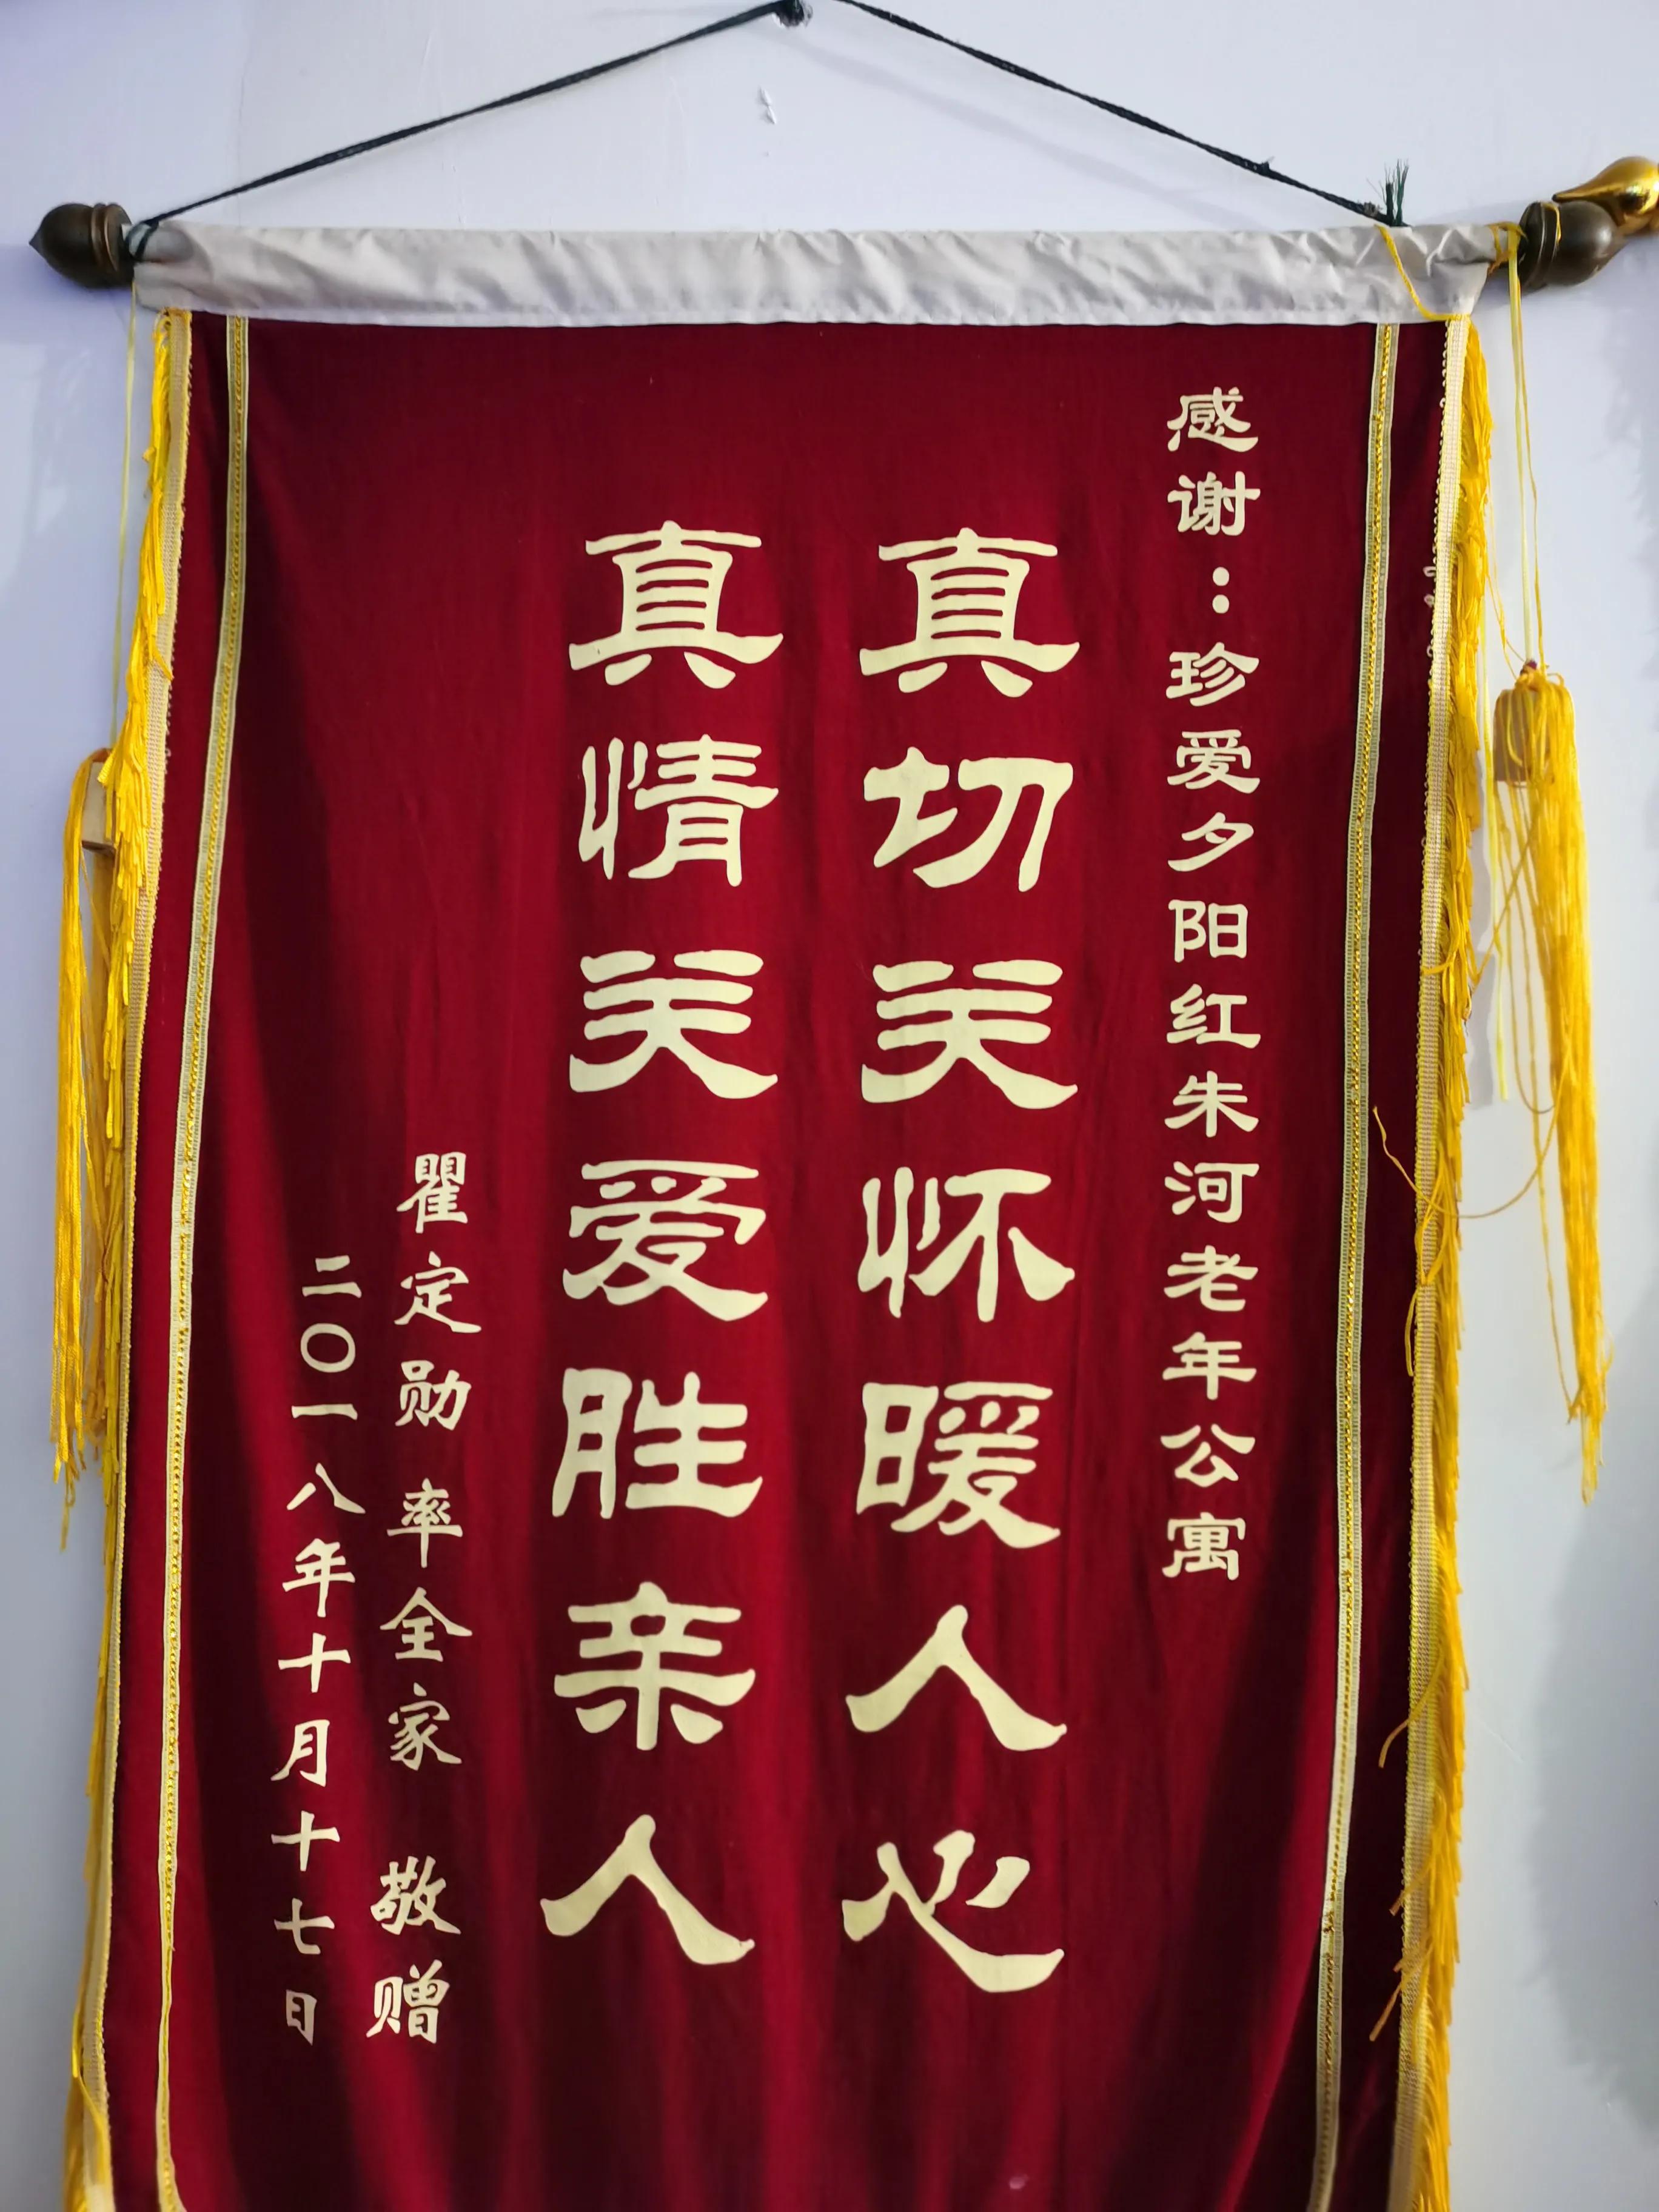 感谢：珍爱夕阳红朱河老年公寓
真切关怀暖人心
真情关爱胜亲人
瞿定勋 率全家 敬赠
二〇一八年十月十七日